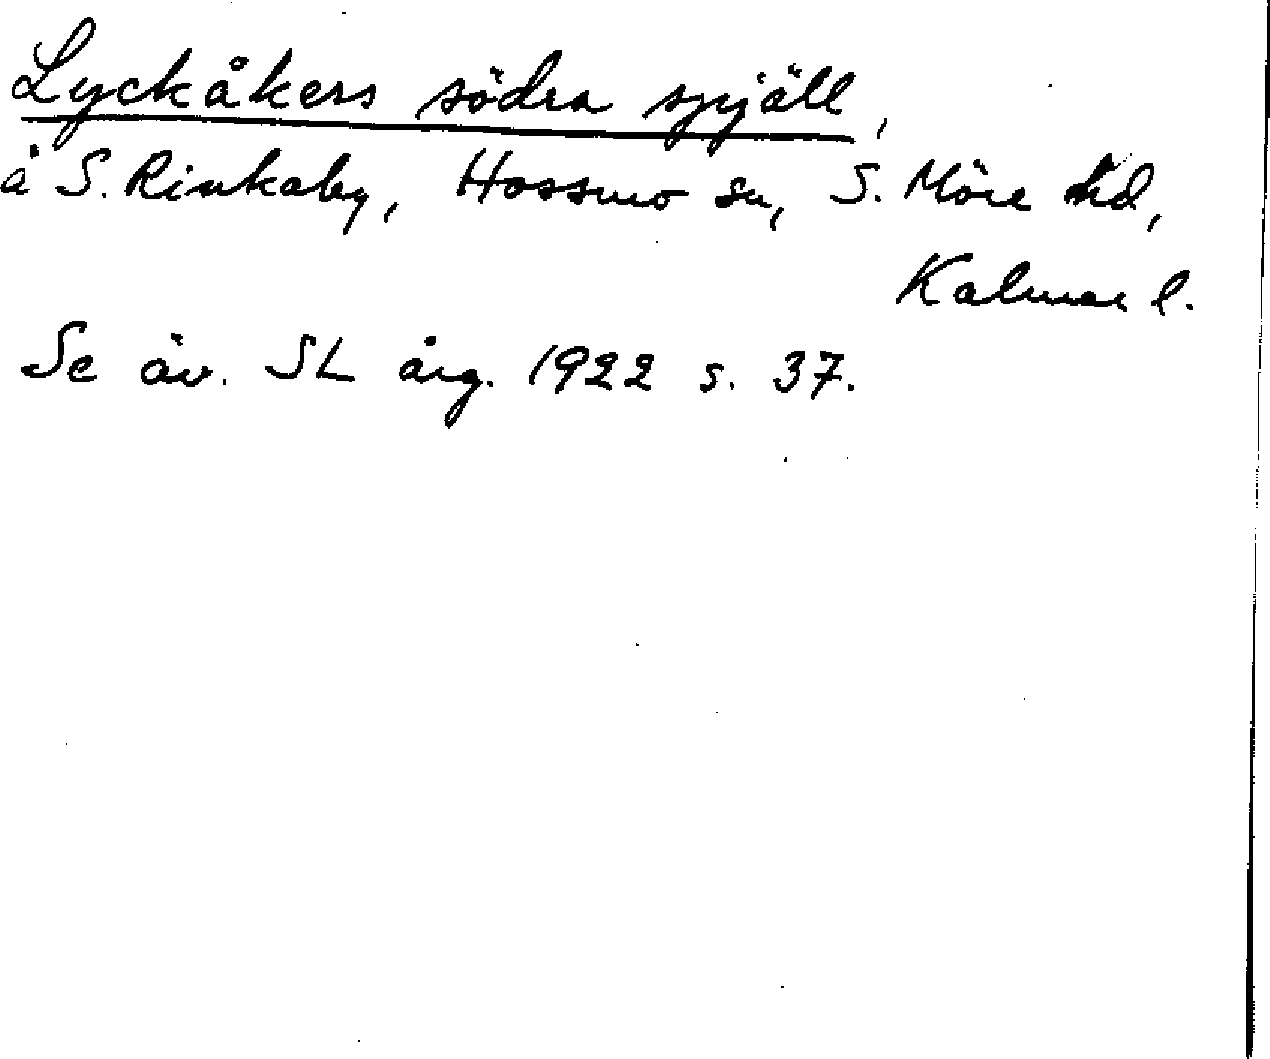 Lyckåkers södra spjäll,
å S. Rinkaby, Hossmo sn, S. Möre hd,
Kalmar l.
Se äv. SL årg. 1922 s. 37.